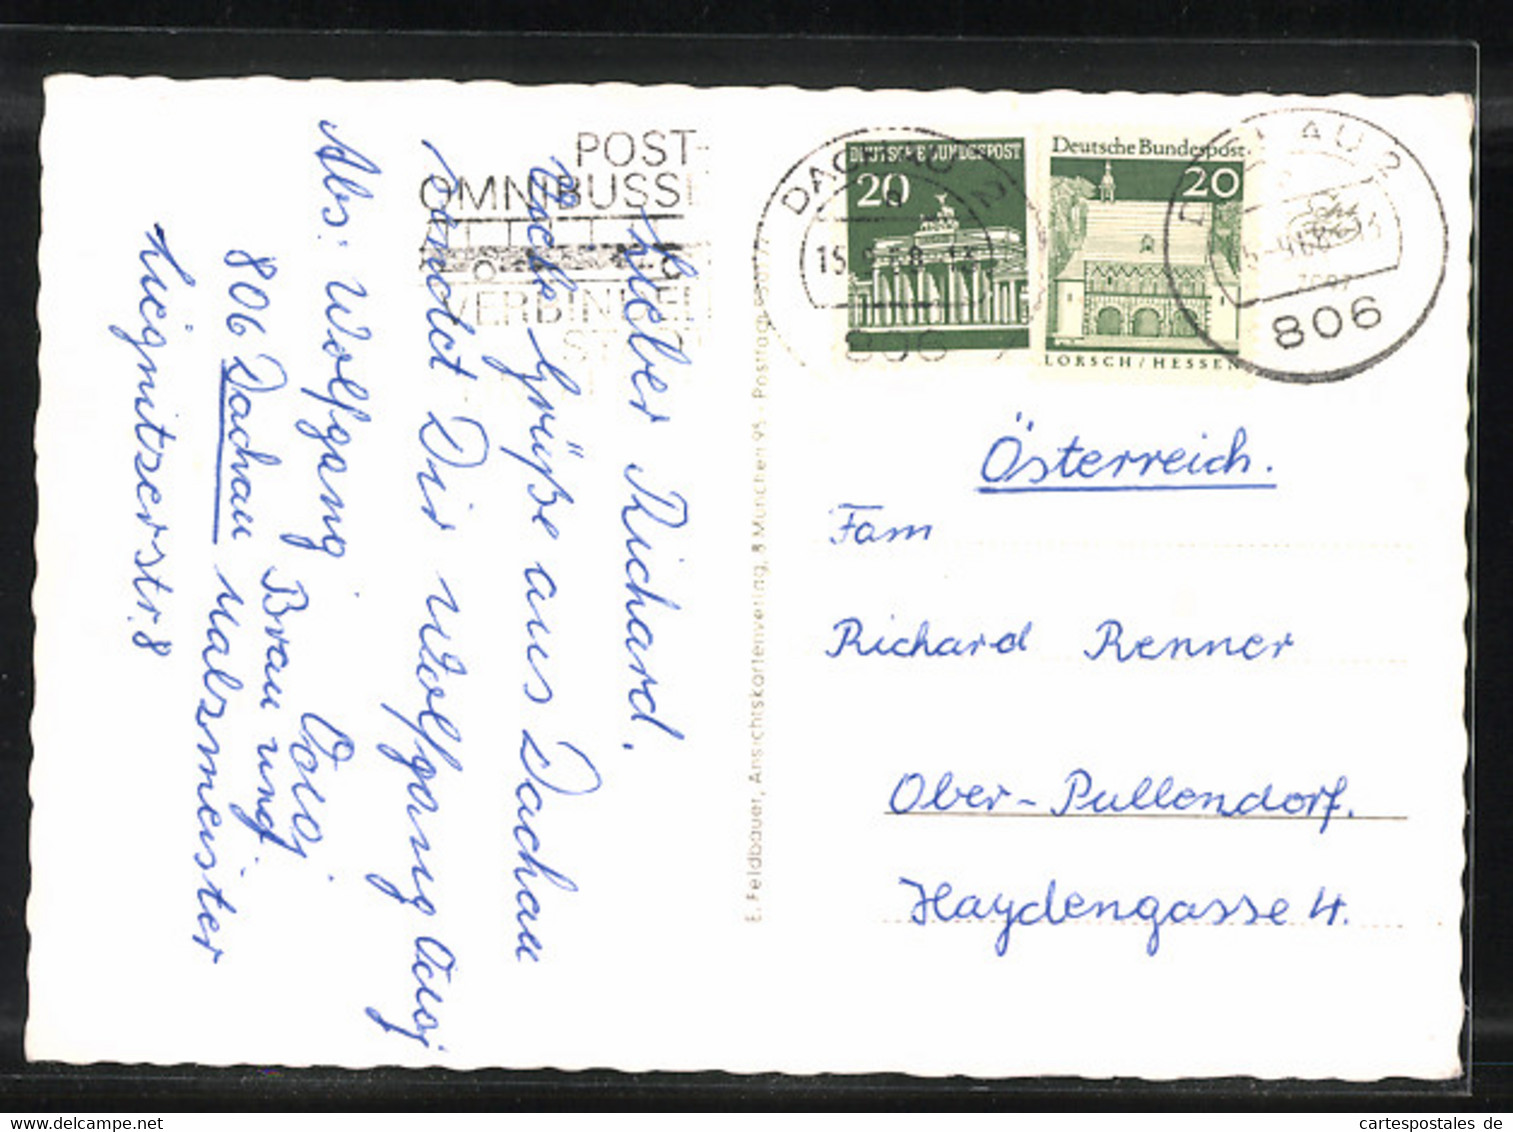 POST
OMNIBUSSE
VERBINDEN
DACHAU 2
a
806
DEUTSCHE BUNDESPOST
20
Deutsche Bundespost
20
LORSCH/HESSEN
DACHAU 2
806
Lieber Richard.
Grüße aus Dachau
sendet Dir Wolfgang
Abs: Wolfgang
Brau und
806 Dachau Malzmeister
Liegnitzerstr. 8
E. Feldbauer, Ansichtskartenverlag, 8 München 95 · Postfach
Österreich.
Fam
Richard Renner
Ober-Pullendorf.
Haydengasse 4.
cartespostales de